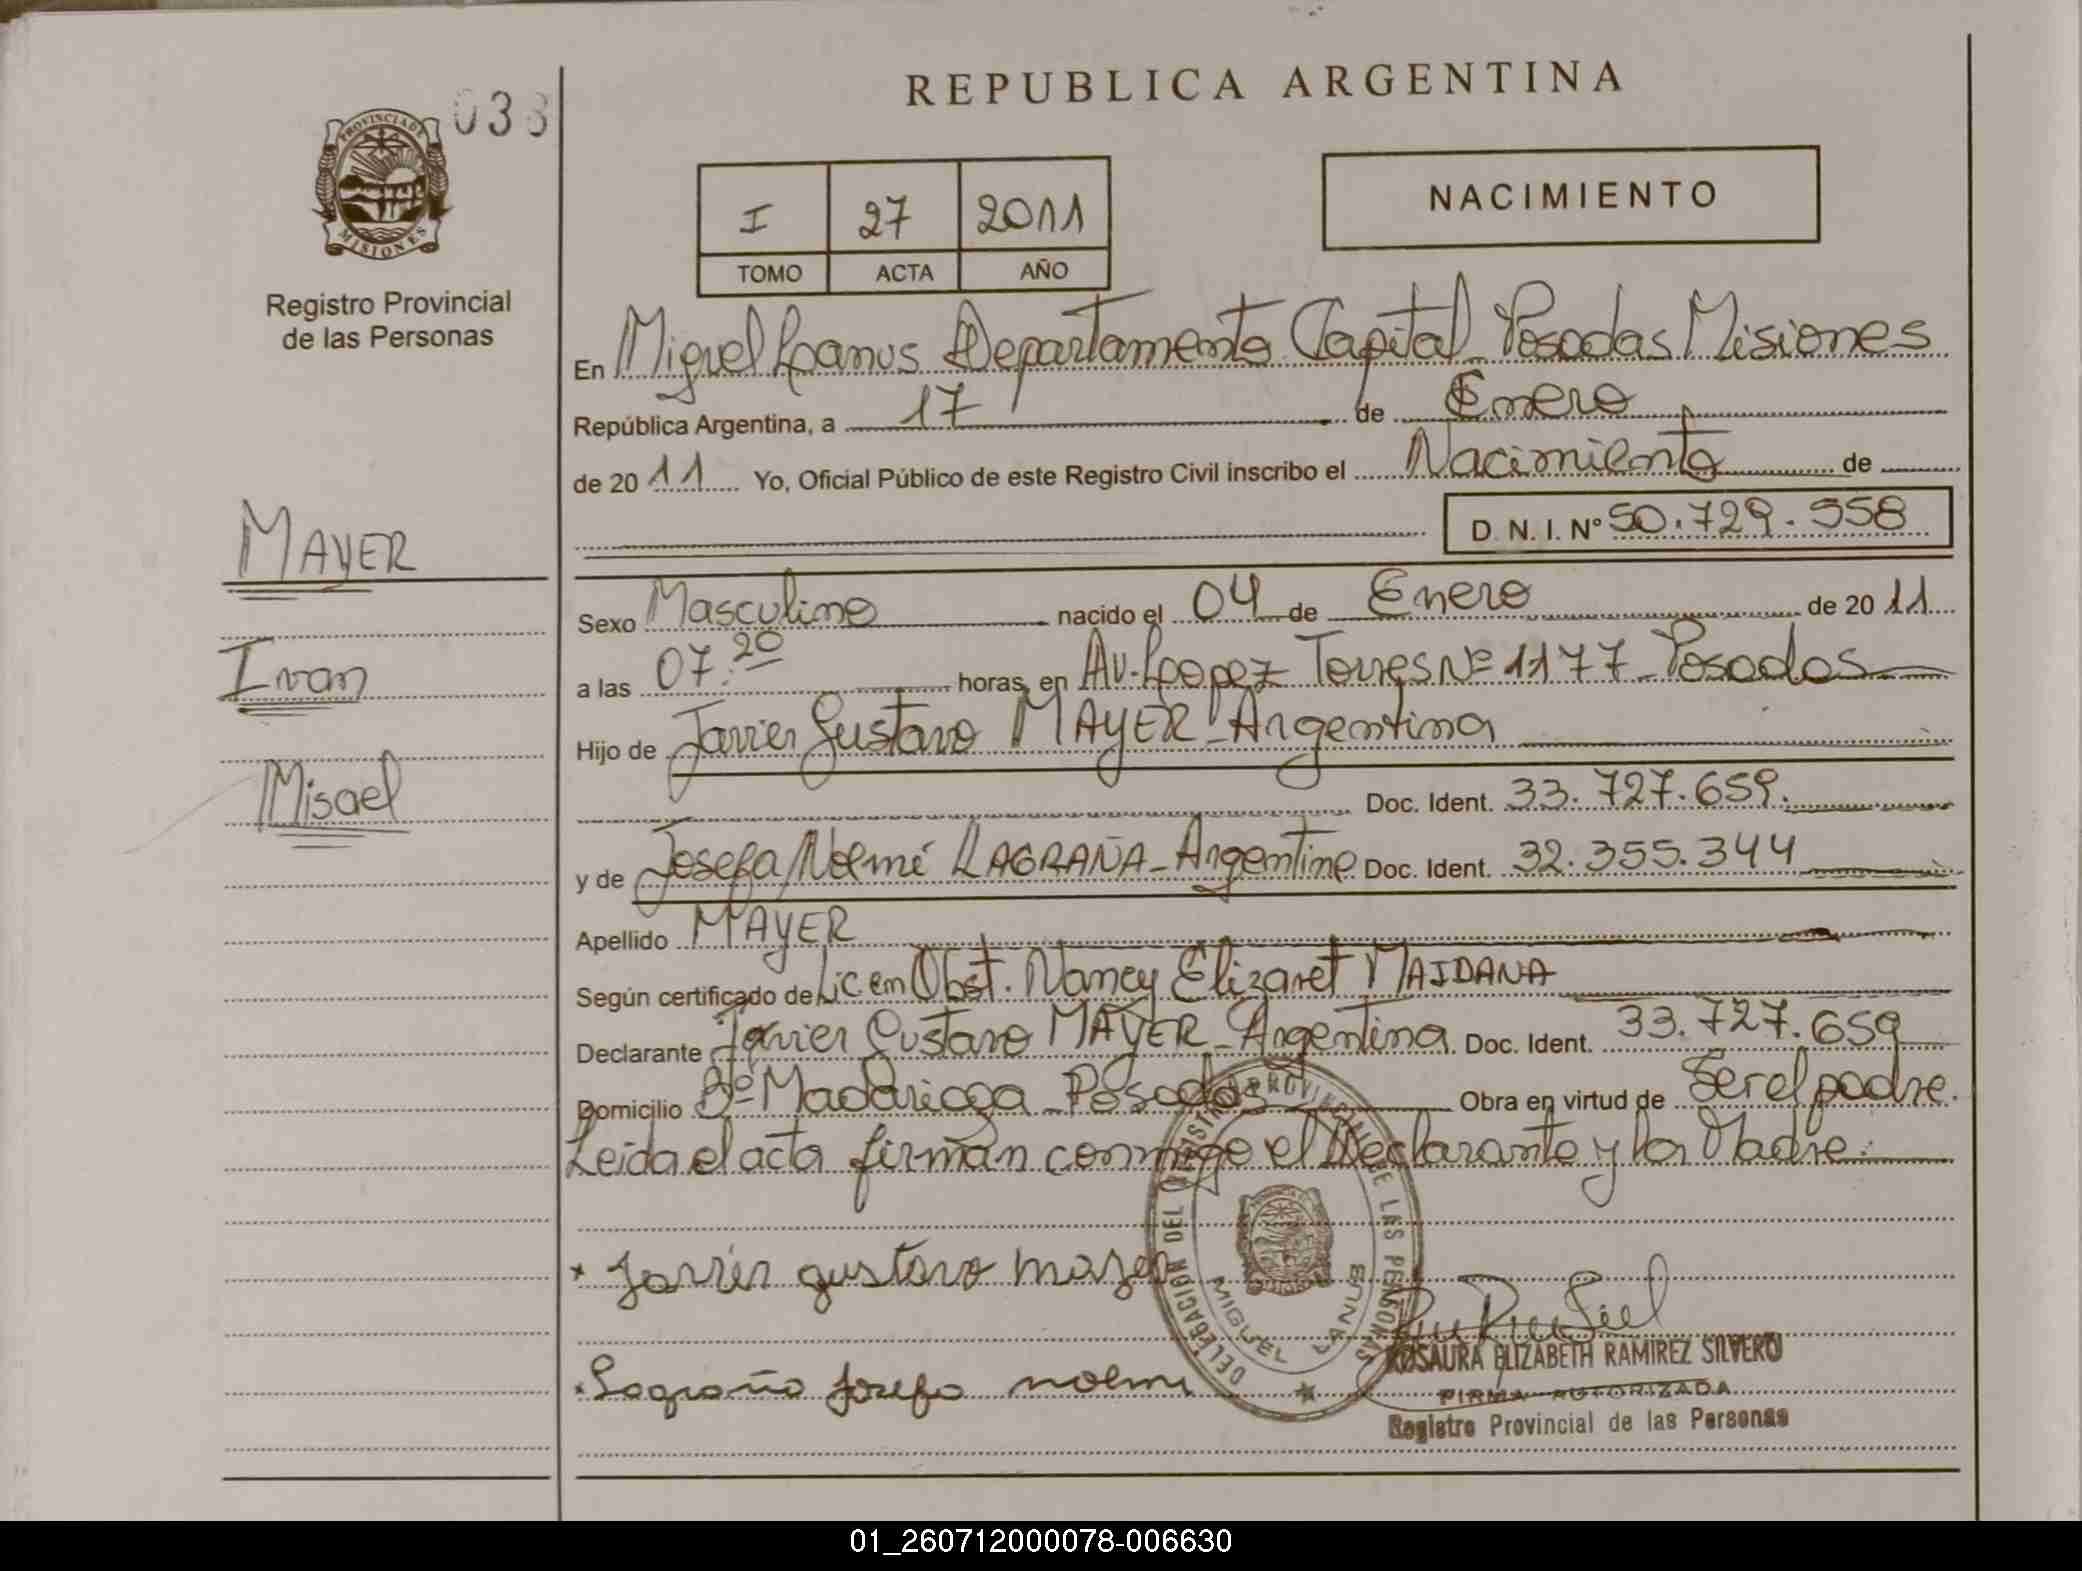 REPUBLICA ARGENTINA
PROVINCIA DE
MISIONES
Registro Provincial
de las Personas
I 27 2011
TOMO ACTA AÑO
NACIMIENTO
En Miguel Lanus Departamento Capital Posadas Misiones
República Argentina, a 17 de Enero
de 2011 Yo, Oficial Público de este Registro Civil inscribo el Nacimiento de
D. N. I. Nº 50.729.558
MAYER
Ivan
Misael
Sexo Masculino nacido el 04 de Enero de 2011
a las 07:20 horas, en Av. Lopez Torres Nº 1177 - Posadas
Hijo de Javier Gustavo MAYER - Argentina
Doc. Ident. 33.727.659.
y de Josefa Noemí LAGRAÑA - Argentina Doc. Ident. 32.355.344
Apellido MAYER
Según certificado de Lic en Obst. Nancy Elizaret MAIDANA
Declarante Javier Gustavo MAYER - Argentina Doc. Ident. 33.727.659
Domicilio Bº Madariaga - Posadas Obra en virtud de Ser el padre.
Leida el acta firman conmigo el Declarante y la Madre.
DELEGACION DEL REGISTRO PROVINCIAL DE LAS PERSONAS
MIGUEL LANUS
* Javier gustavo mayer
* Lagraña Josefa noemi
ROSAURA ELIZABETH RAMIREZ SILVERO
FIRMA AUTORIZADA
Registro Provincial de las Personas
01_260712000078-006630